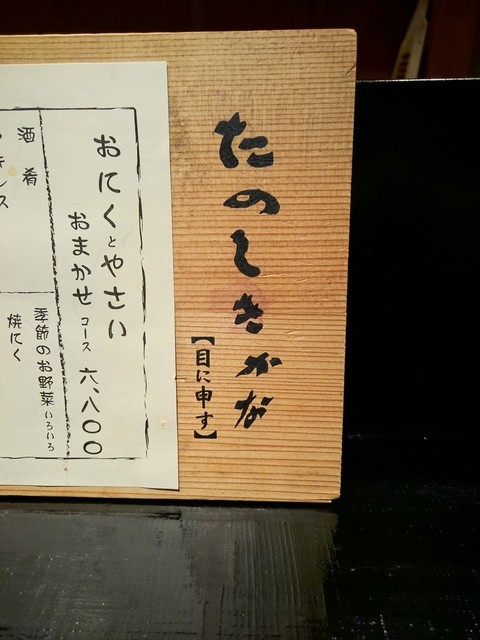 たのしきかな
【目に申す】
おにくとやさい
おまかせコース 六、八〇〇
酒肴
季節のお野菜いろいろ
焼にく